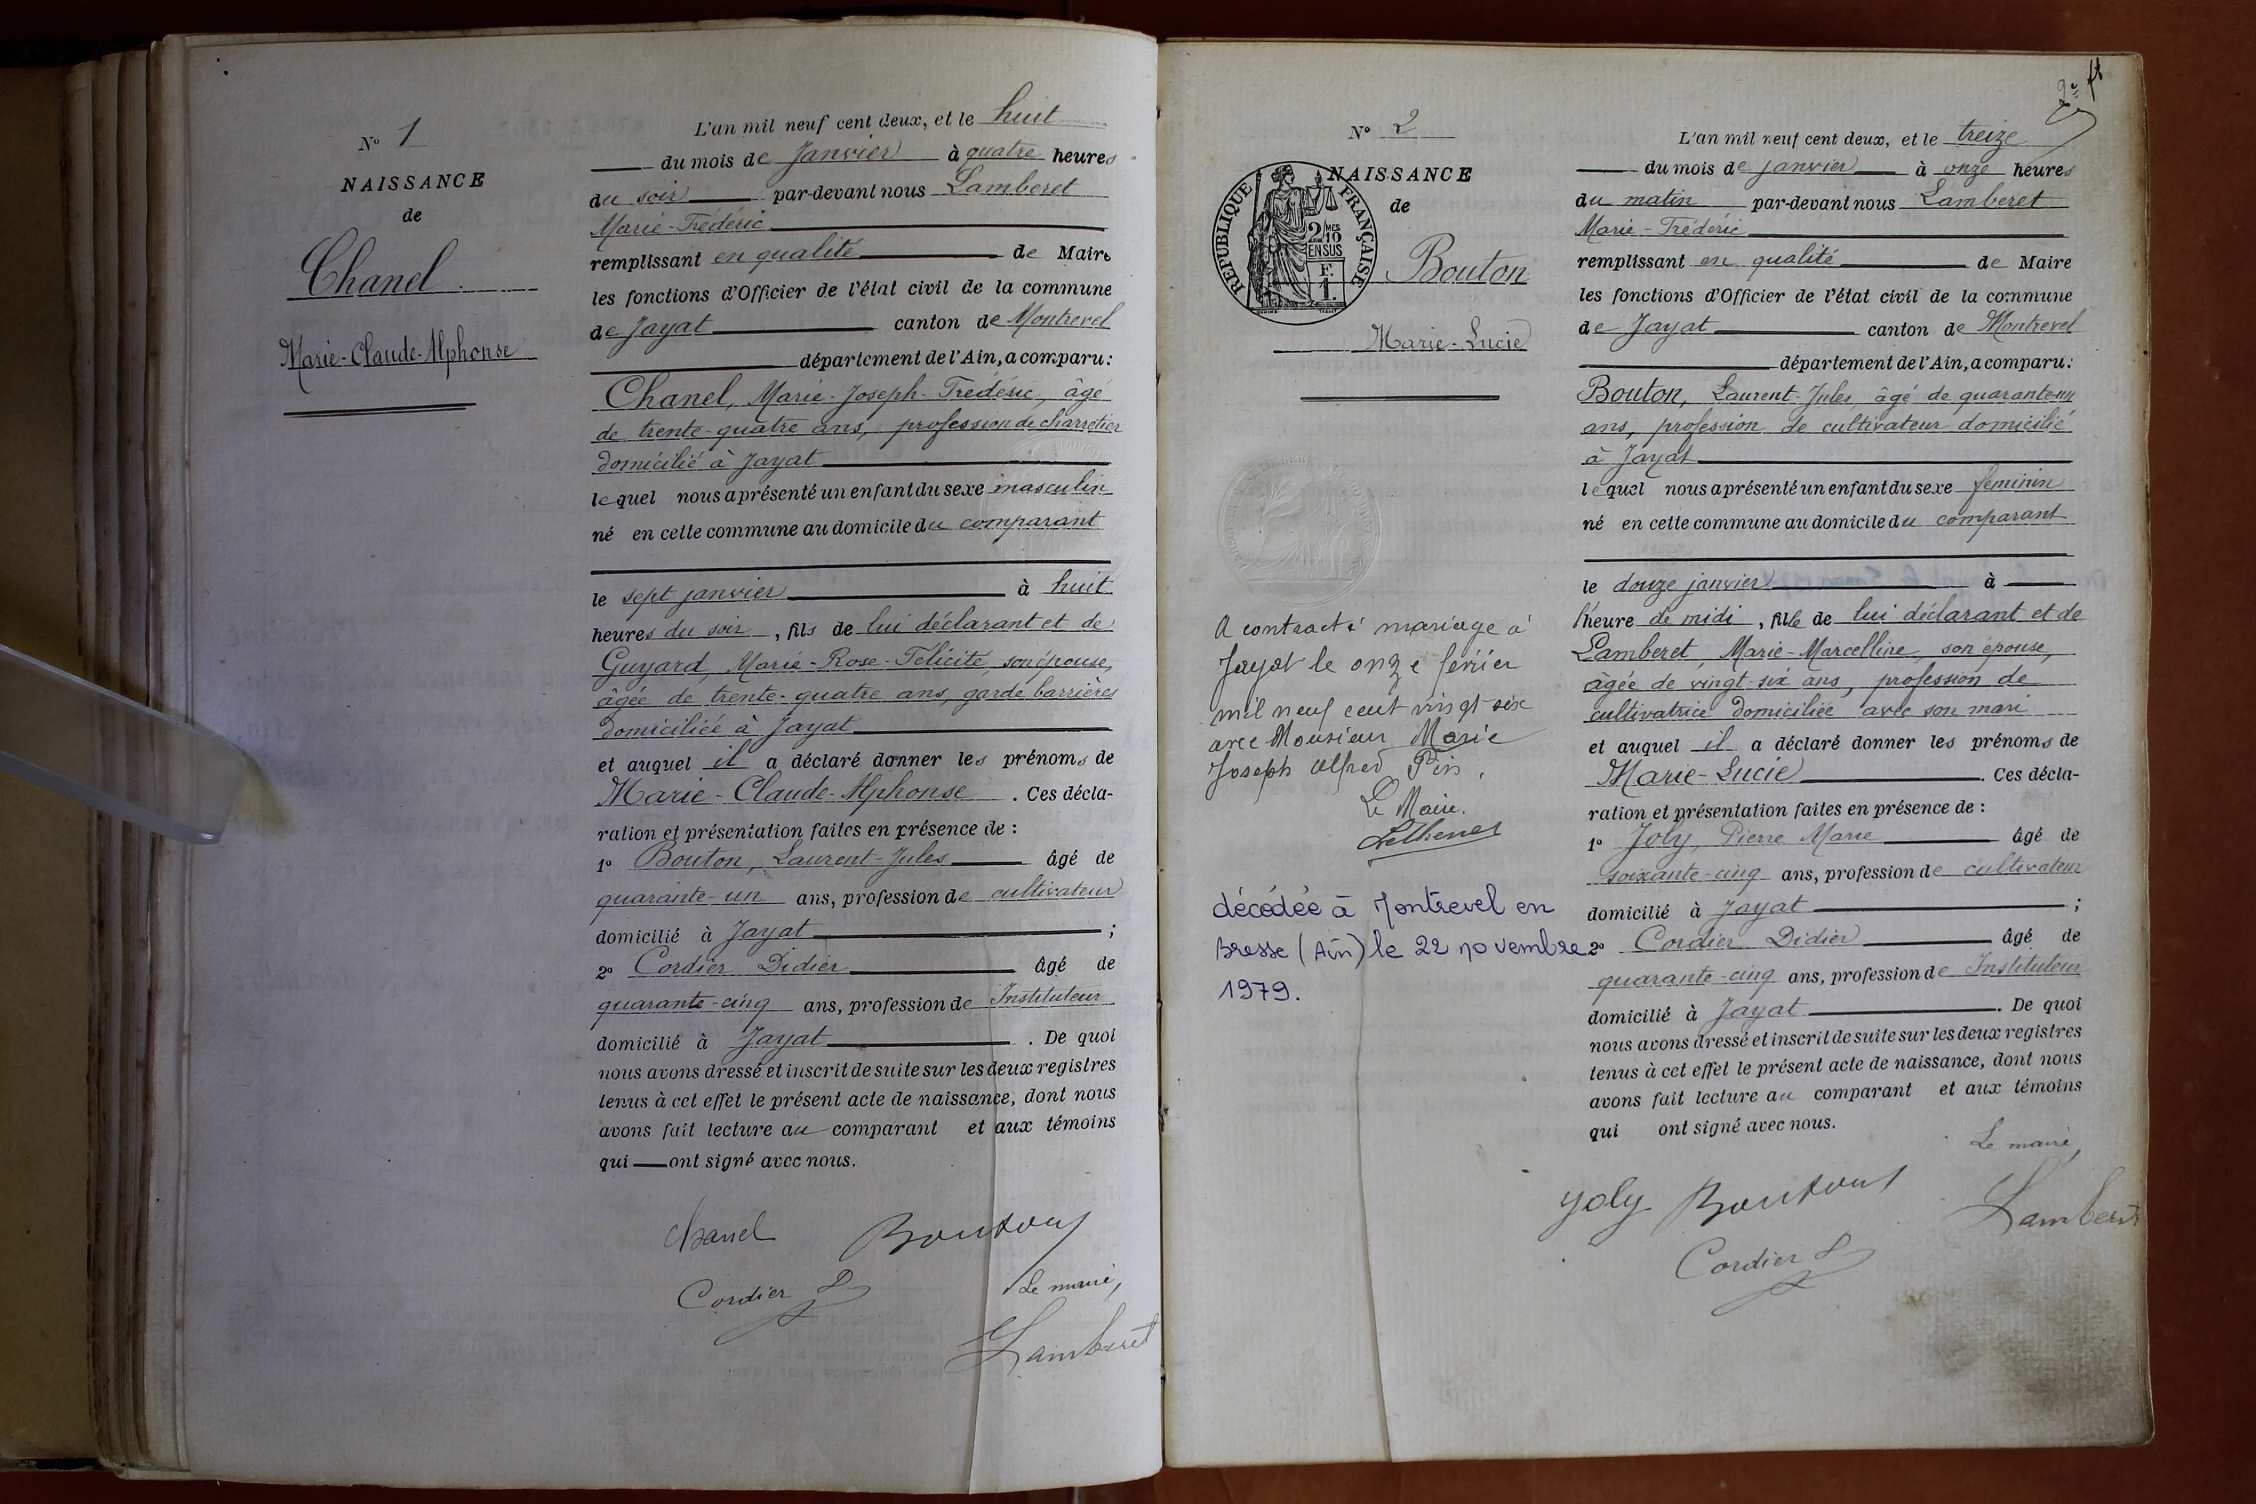 N° 1
NAISSANCE
de
Chanel
Marie-Claude-Alphonse
L'an mil neuf cent deux, et le huit
du mois de Janvier à quatre heures
du soir par-devant nous Lamberet
Marie-Frédéric
remplissant en qualité de Maire
les fonctions d'Officier de l'état civil de la commune
de Jayat canton de Montrevel
département de l'Ain, a comparu:
Chanel, Marie-Joseph-Frédéric, âgé
de trente-quatre ans, profession de charretier
domicilié à Jayat
lequel nous a présenté un enfant du sexe masculin
né en cette commune au domicile du comparant
le sept janvier à huit
heures du soir, fils de lui déclarant et de
Guyard, Marie-Rose-Félicité, son épouse,
âgée de trente-quatre ans, garde barrières
domiciliée à Jayat
et auquel il a déclaré donner les prénoms de
Marie-Claude-Alphonse. Ces décla-
ration et présentation faites en présence de :
1° Bouton, Laurent-Jules âgé de
quarante-un ans, profession de cultivateur
domicilié à Jayat ;
2° Cordier Didier âgé de
quarante-cinq ans, profession de Instituteur
domicilié à Jayat. De quoi
nous avons dressé et inscrit de suite sur les deux registres
tenus à cet effet le présent acte de naissance, dont nous
avons fait lecture au comparant et aux témoins
qui ont signé avec nous.
Chanel Bouton
Cordier D
Le maire,
Lamberet
2e
N° 2
NAISSANCE
de
REPUBLIQUE FRANÇAISE
2 MES
10
EN SUS
F.
1.
Bouton
Marie-Lucie
A contracté mariage à
Jayat le onze février
mil neuf cent vingt six
avec Monsieur Marie
Joseph Alfred Pin.
Le Maire.
décédée à Montrevel en
Bresse (Ain) le 22 novembre
1979.
L'an mil neuf cent deux, et le treize
du mois de janvier à onze heures
du matin par-devant nous Lamberet
Marie-Frédéric
remplissant en qualité de Maire
les fonctions d'Officier de l'état civil de la commune
de Jayat canton de Montrevel
département de l'Ain, a comparu:
Bouton, Laurent-Jules âgé de quarante-un
ans, profession de cultivateur domicilié
à Jayat
lequel nous a présenté un enfant du sexe féminin
né en cette commune au domicile du comparant
le douze janvier à
l'heure de midi, fille de lui déclarant et de
Lamberet, Marie-Marcelline, son épouse,
âgée de vingt-six ans, profession de
cultivatrice domiciliée avec son mari
et auquel il a déclaré donner les prénoms de
Marie-Lucie. Ces décla-
ration et présentation faites en présence de :
1° Joly, Pierre Marie âgé de
soixante-cinq ans, profession de cultivateur
domicilié à Jayat ;
2° Cordier Didier âgé de
quarante-cinq ans, profession de Instituteur
domicilié à Jayat. De quoi
nous avons dressé et inscrit de suite sur les deux registres
tenus à cet effet le présent acte de naissance, dont nous
avons fait lecture au comparant et aux témoins
qui ont signé avec nous.
Le maire,
Joly Bouton Lamberet
Cordier D